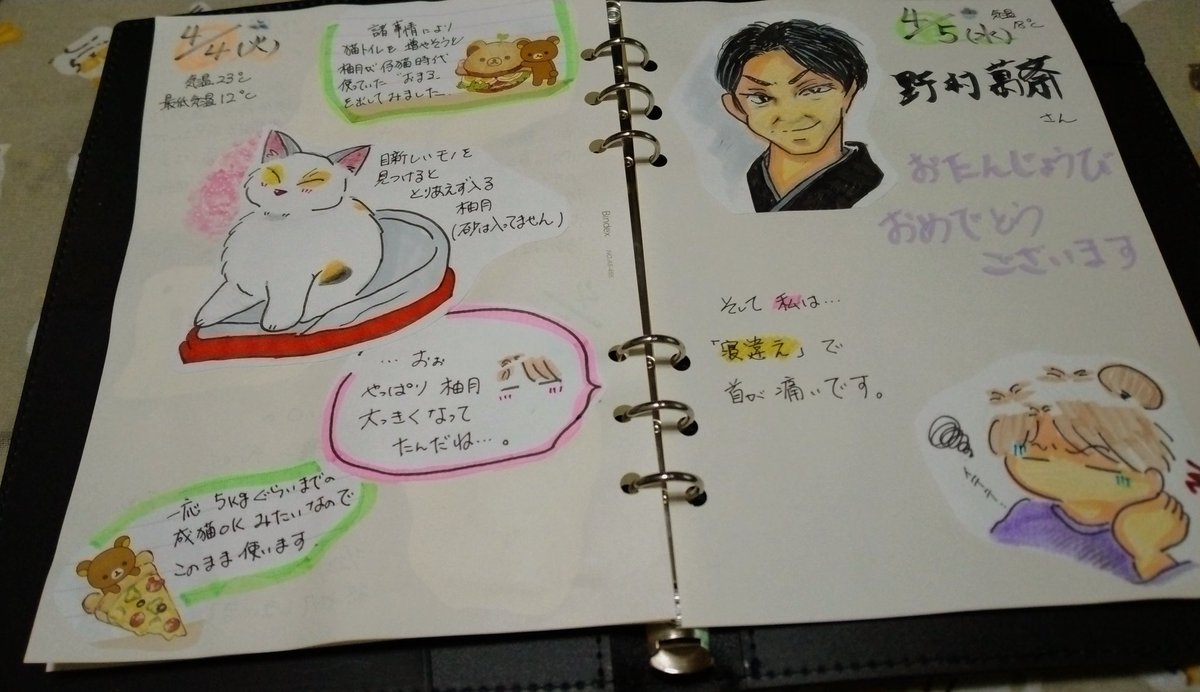 4/4(火)
気温23℃
最低気温12℃
諸事情により
猫トイレを増やそうと
柚月が仔猫時代
使っていた"おまる"
を出してみました
目新しいモノを
見つけると
とりあえず入る
柚月
(砂は入ってません)
…おぉ
やっぱり柚月
大っきくなって
たんだね…。
一応5kgぐらいまでの
成猫OKみたいなので
このまま使います
Bindex
4/5(水)
気温
18℃
野村萬斎
さん
おたんじょうび
おめでとう
ございます
そして私は…
「寝違え」で
首が痛いです。
イテテテ…